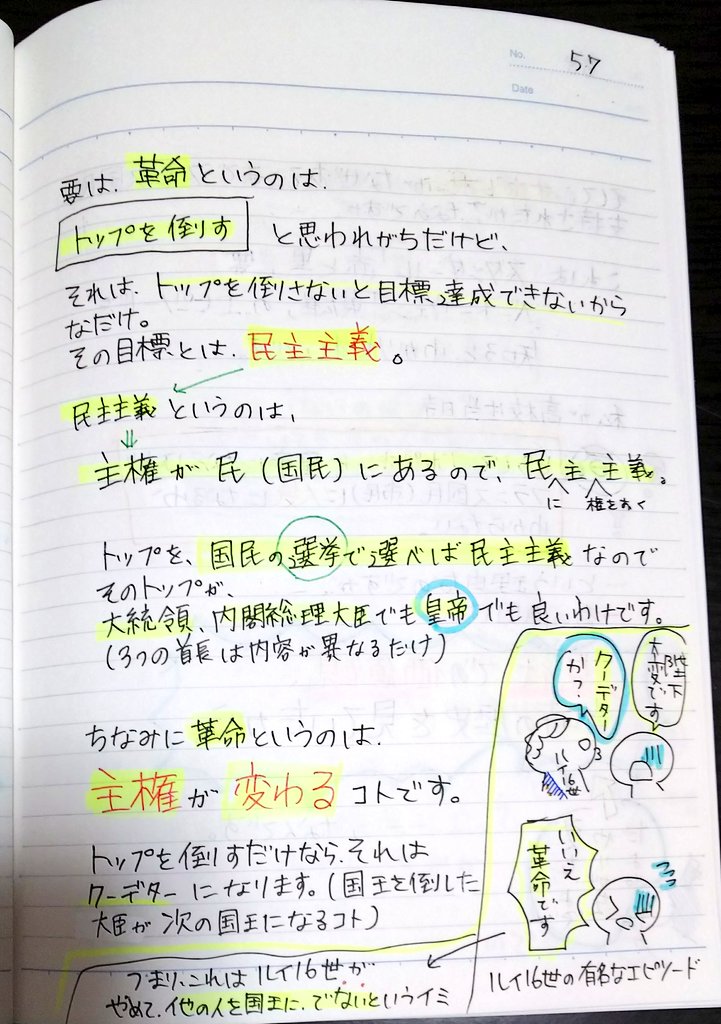 No. 57
Date
要は、革命というのは、
トップを倒す と思われがちだけど、
それは、トップを倒さないと目標達成できないから
なだけ。
その目標とは、民主主義。
民主主義というのは、
主権が民(国民)にあるので、民主主義。
に 権をおく
トップを、国民の選挙で選べば民主主義なので
そのトップが、
大統領、内閣総理大臣でも皇帝でも良いわけです。
(3つの首長は内容が異なるだけ)
ちなみに革命というのは、
主権が変わるコトです。
トップを倒すだけなら、それは
クーデターになります。(国王を倒した
大臣が次の国王になるコト)
陛下
大変です
クーデター
か?
ルイ16世
いいえ
革命です
ルイ16世の有名なエピソード
つまり、これはルイ16世が
やめて、他の人を国王に、でないというイミ